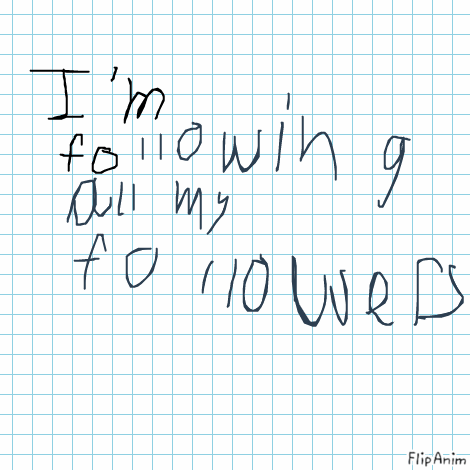 I'm
following
all my
followers
FlipAnim